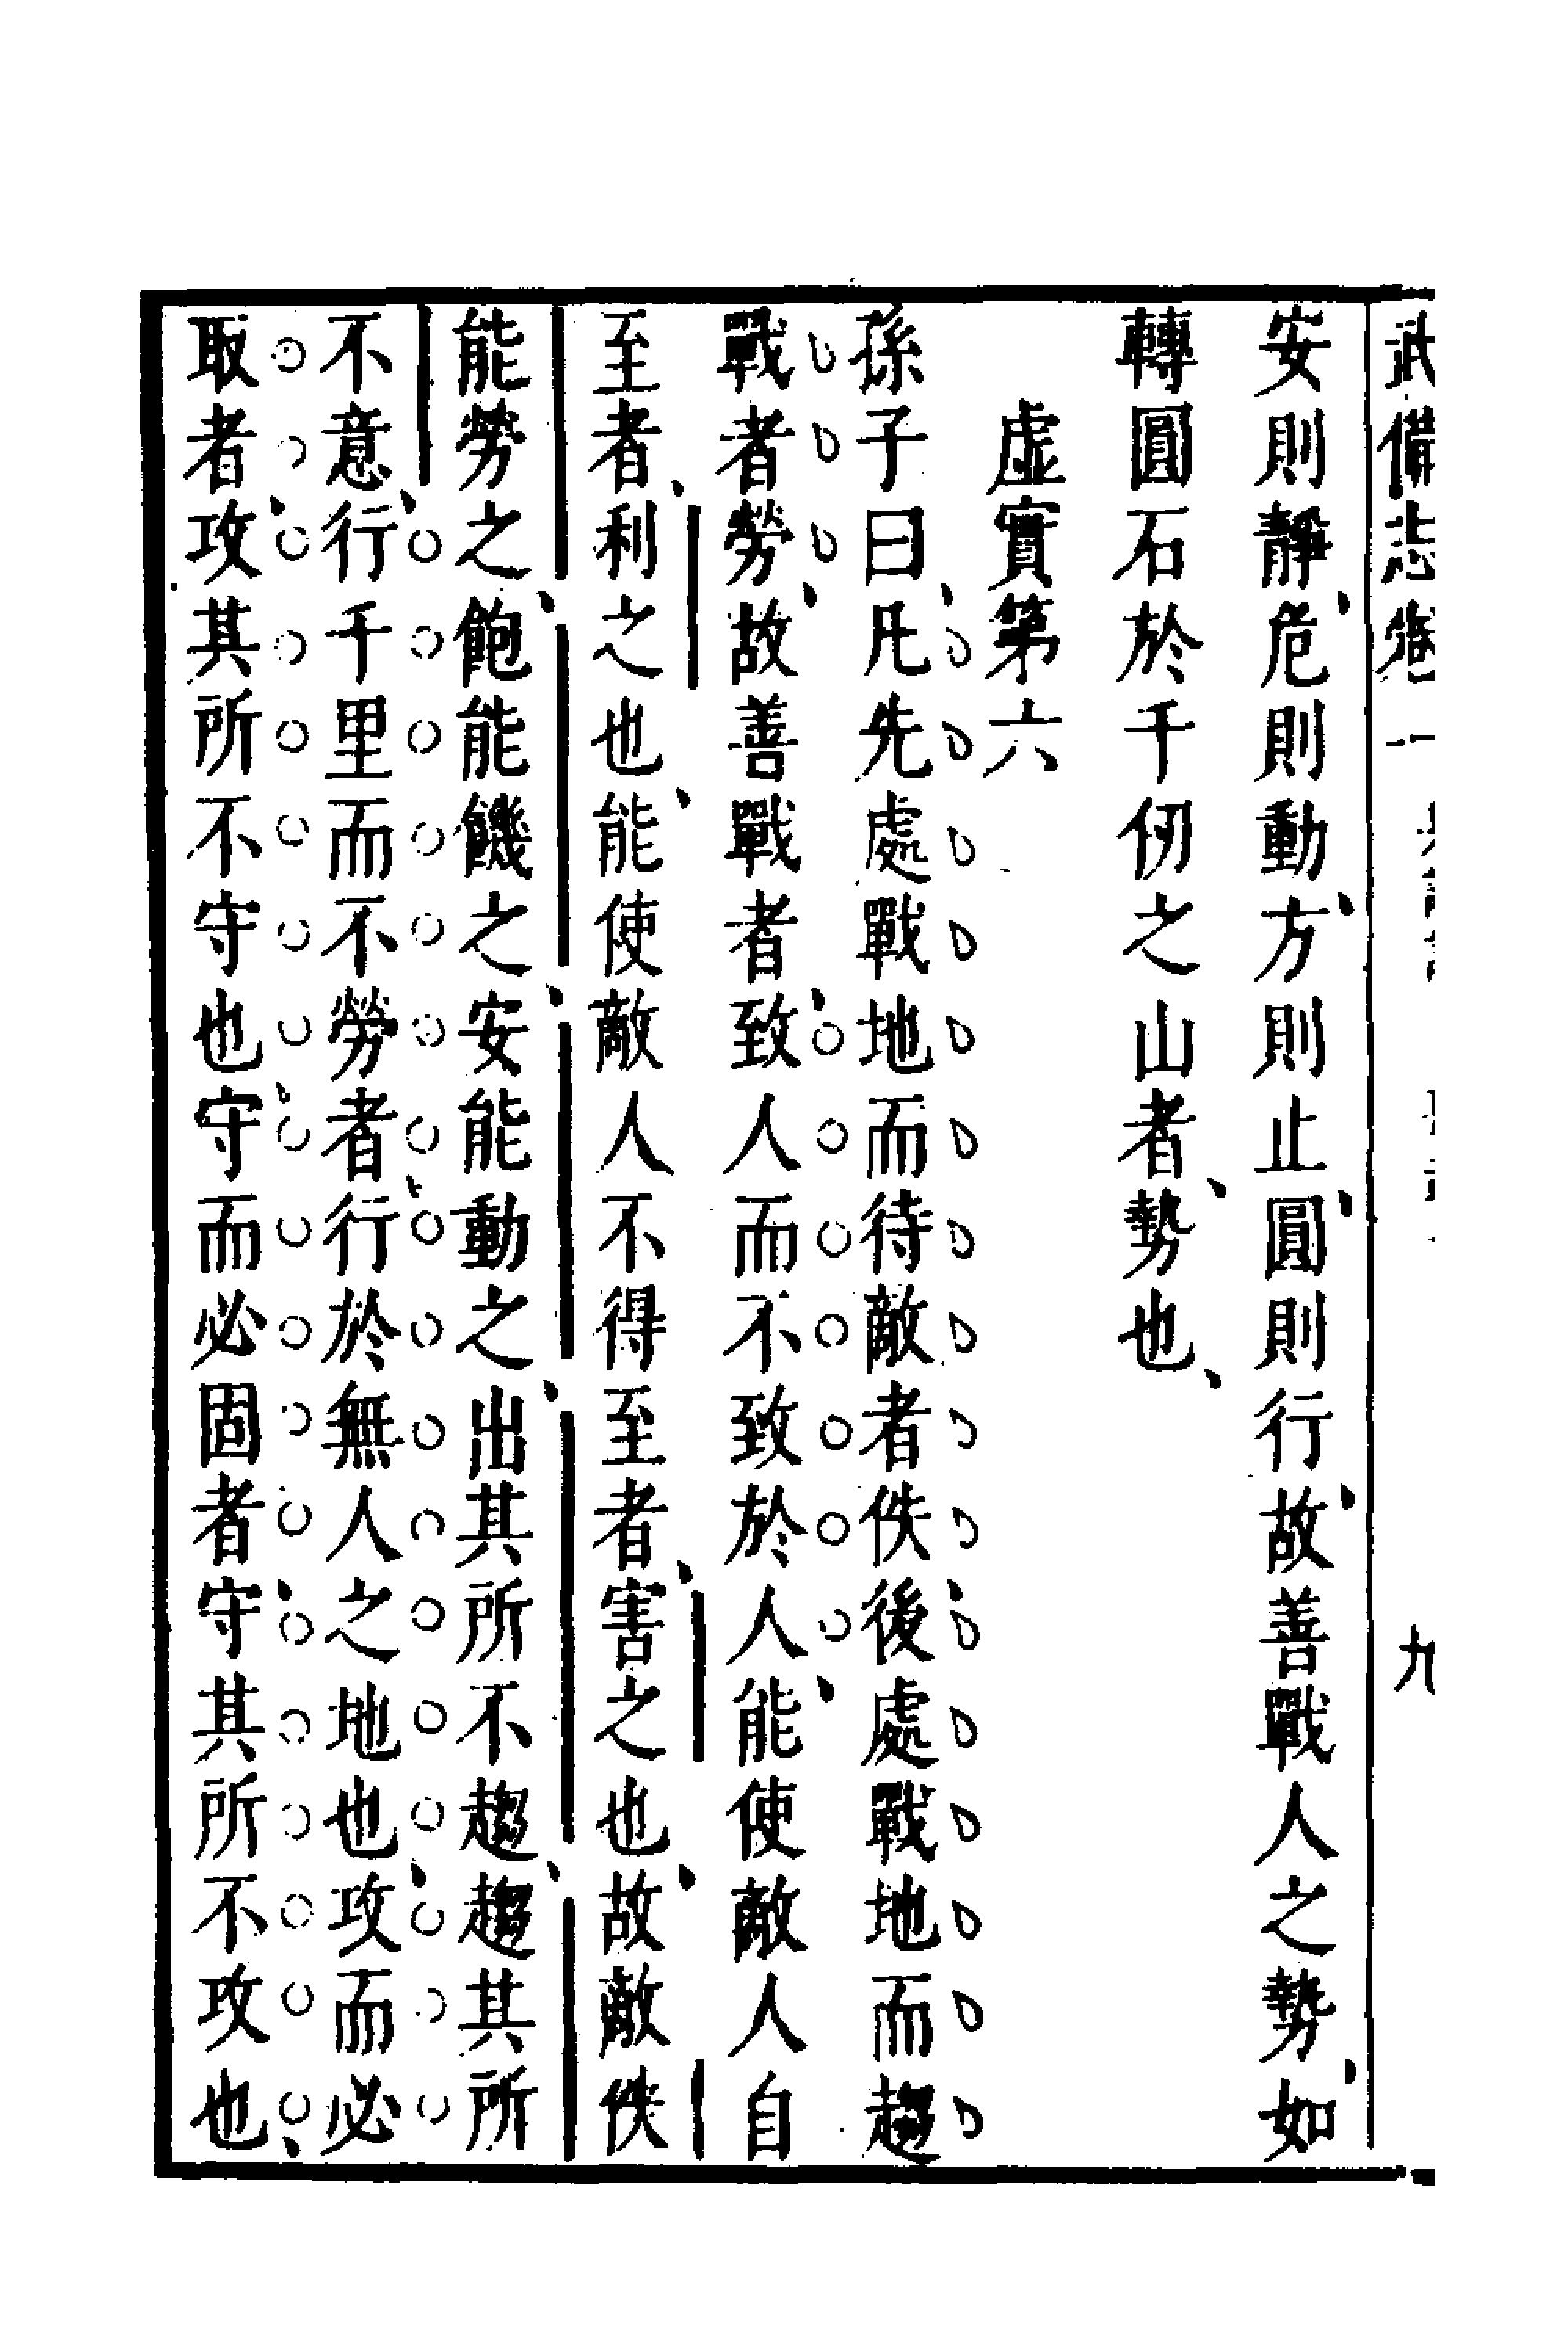 武備志卷一 九
安則靜危則動方則止圓則行故善戰人之勢如
轉圓石於千仞之山者勢也
虛實第六
孫子曰凡先處戰地而待敵者佚後處戰地而趨
戰者勞故善戰者致人而不致於人能使敵人自
至者利之也能使敵人不得至者害之也故敵佚
能勞之飽能饑之安能動之出其所不趨趨其所
不意行千里而不勞者行於無人之地也攻而必
取者攻其所不守也守而必固者守其所不攻也